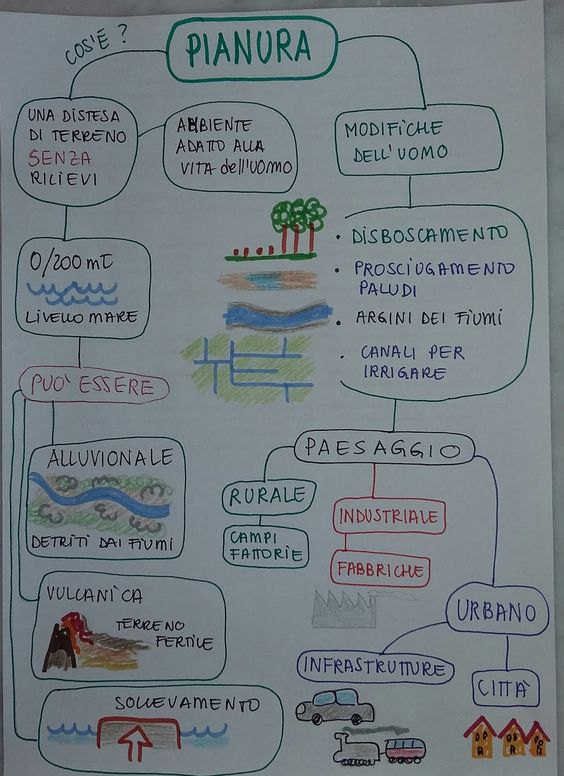 COS'È ?
PIANURA
UNA DISTESA
DI TERRENO
SENZA
RILIEVI
AMBIENTE
ADATTO ALLA
VITA dell'UOMO
MODIFICHE
DELL'UOMO
0/200 mt
LIVELLO MARE
• DISBOSCAMENTO
• PROSCIUGAMENTO
PALUDI
• ARGINI DEI FIUMI
• CANALI PER
IRRIGARE
PUO' ESSERE
ALLUVIONALE
DETRITI DAI FIUMI
VULCANICA
TERRENO
FERTILE
SOLLEVAMENTO
PAESAGGIO
RURALE
CAMPI
FATTORIE
INDUSTRIALE
FABBRICHE
URBANO
INFRASTRUTTURE
CITTÀ